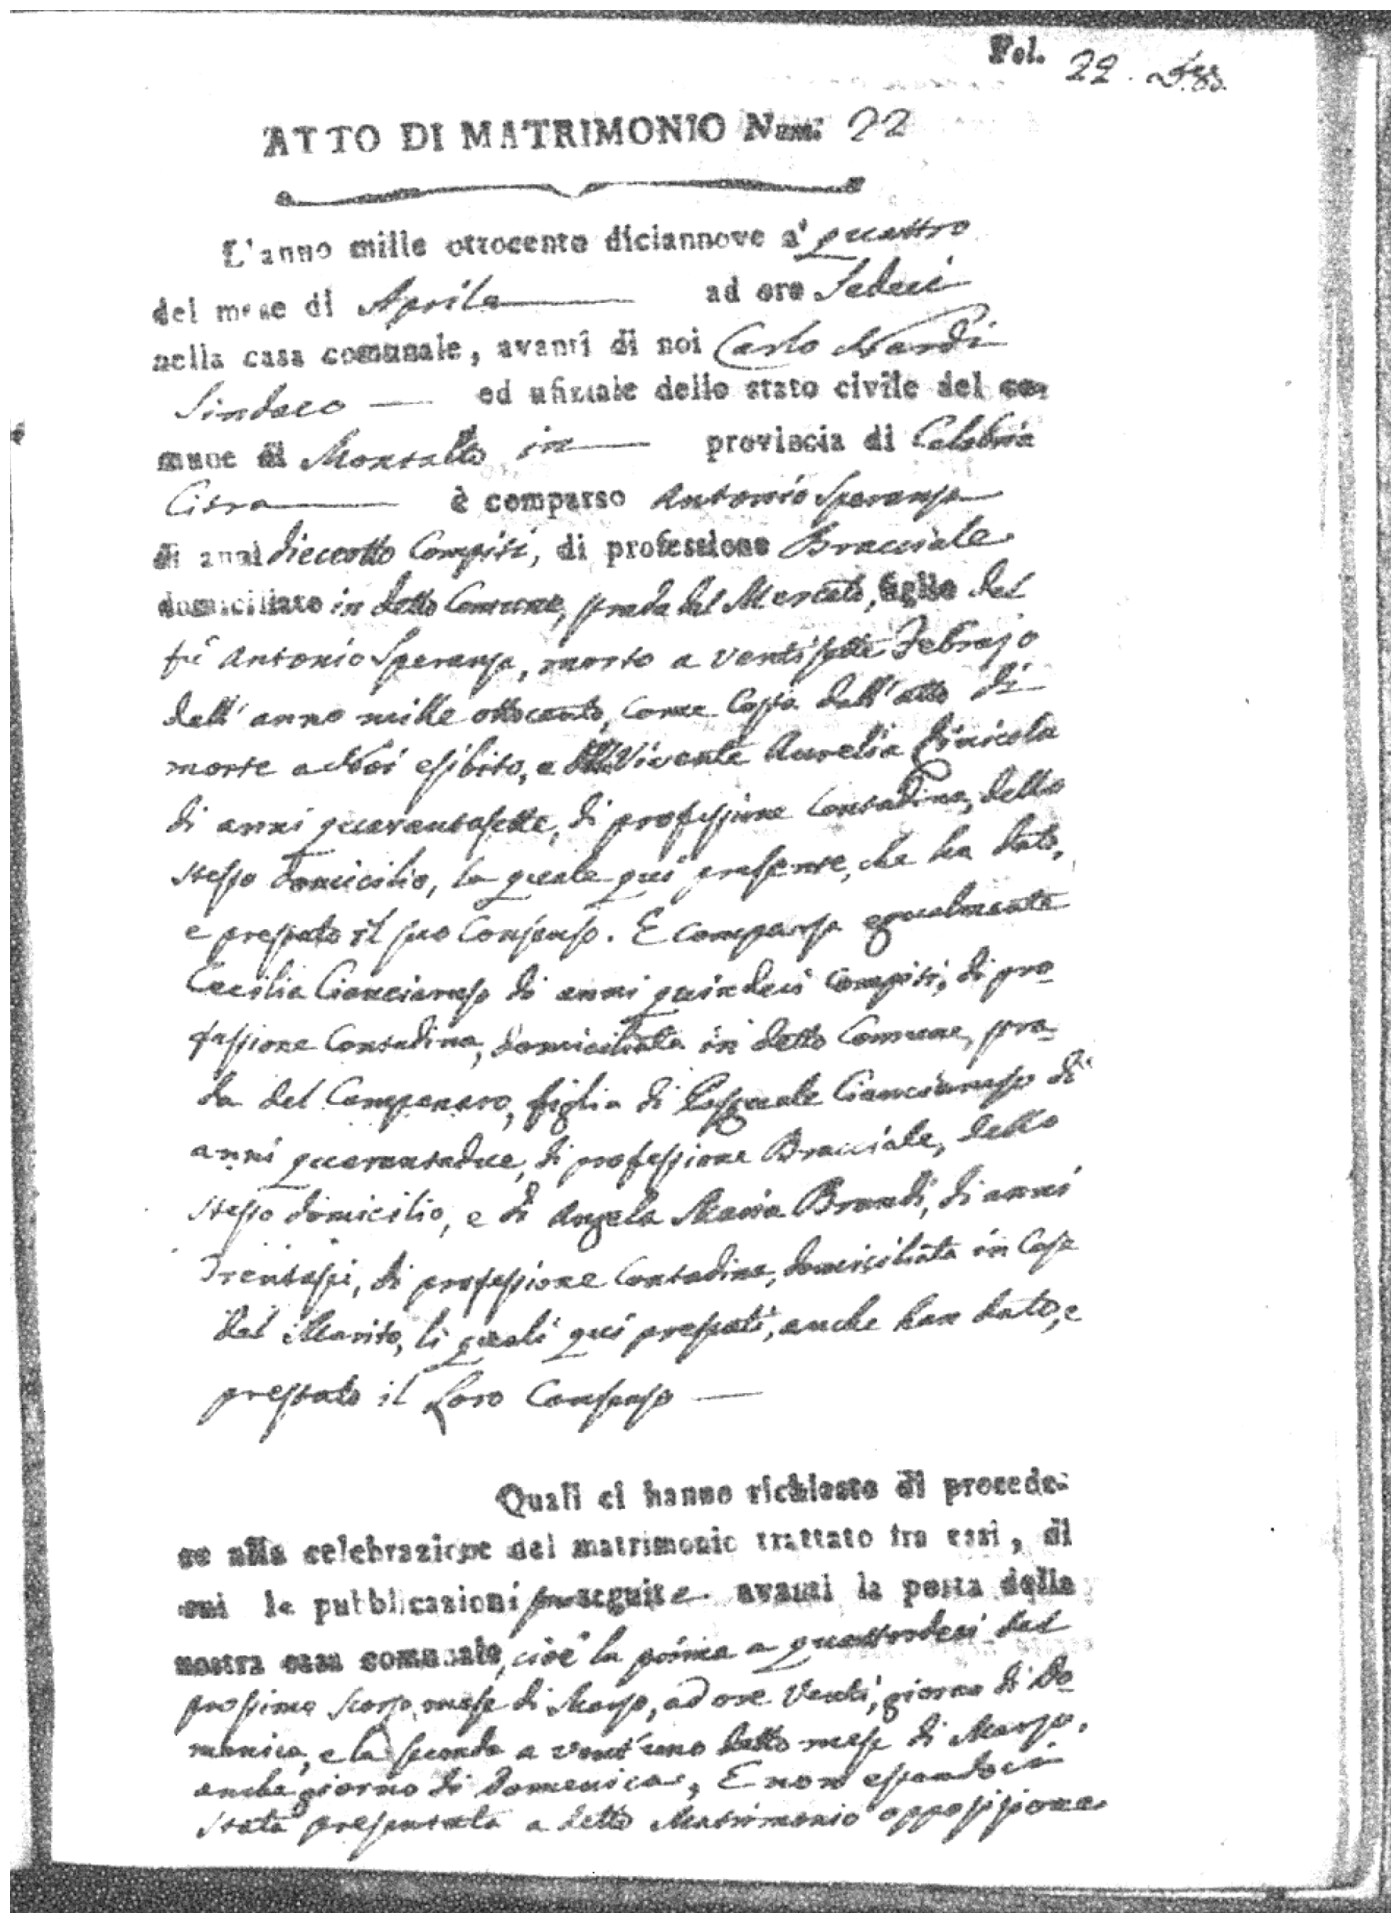 Fol. 22.
ATTO DI MATRIMONIO Num. 22
L'anno mille ottocento diciannove a' quattro
del mese di Aprile ad ore Sedeci
nella casa comunale, avanti di noi Carlo Nardi
Sindaco ed ufiziale dello stato civile del co-
mune di Montalto in provincia di Calabria
Citra è comparso Antonio Speranza
di anni dieceotto Compiti, di professione Bracciale
domiciliato in detto Comune, strada del Mercato, figlio del
fù Antonio Speranza, morto a ventisette Febrajo
dell'anno mille ottocento, come costa dall'atto di
morte a Noi esibito, e Vivente Aurelia
di anni quarantasette, di professione Contadina, dello
stesso domicilio, la quale qui presente, che ha dato,
e prestato il suo Consenso. E comparsa egualmente
Cecilia Cianciaruso di anni quindeci compiti, di pro-
fessione Contadina, domiciliata in detto Comune, stra-
da del Campanaro, figlia di Pasquale Cianciaruso di
anni quarantadue, di professione Bracciale, dello
stesso domicilio, e di Angela Maria Brandi, di anni
Trentasei, di professione Contadina, domiciliata in Casa
del Marito, li quali qui presenti, anche han dato, e
prestato il Loro Consenso
Quali ci hanno richiesto di procede-
re alla celebrazione del matrimonio trattato fra essi, di
cui le pubblicazioni avanti la porta della
nostra casa comunale, cioè la prima a quattordeci del
prossimo scorso mese di Marzo, ad ore Venti, giorno di Do-
menica, e la seconda a vent'uno detto mese di Marzo,
anche giorno di Domenica, E non essendoci
stata presentata a detto Matrimonio opposizione